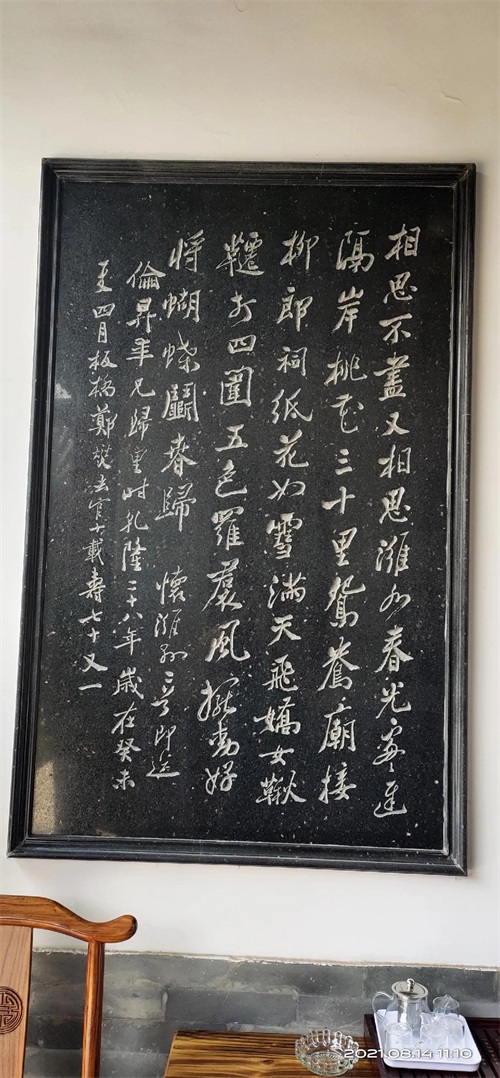 相思不盡又相思濰水春光處〻遲
隔岸桃花三十里鴛鴦廟接
柳郎祠紙花如雪滿天飛嬌女鞦
韆打四圍五色羅裙風擺動好
將蝴蝶鬭春歸 懷濰縣二首即送
倫昇年兄歸里時乾隆二十八年歲在癸未
夏四月板橋鄭燮去官十載壽七十又一
2021.08.14 11:10